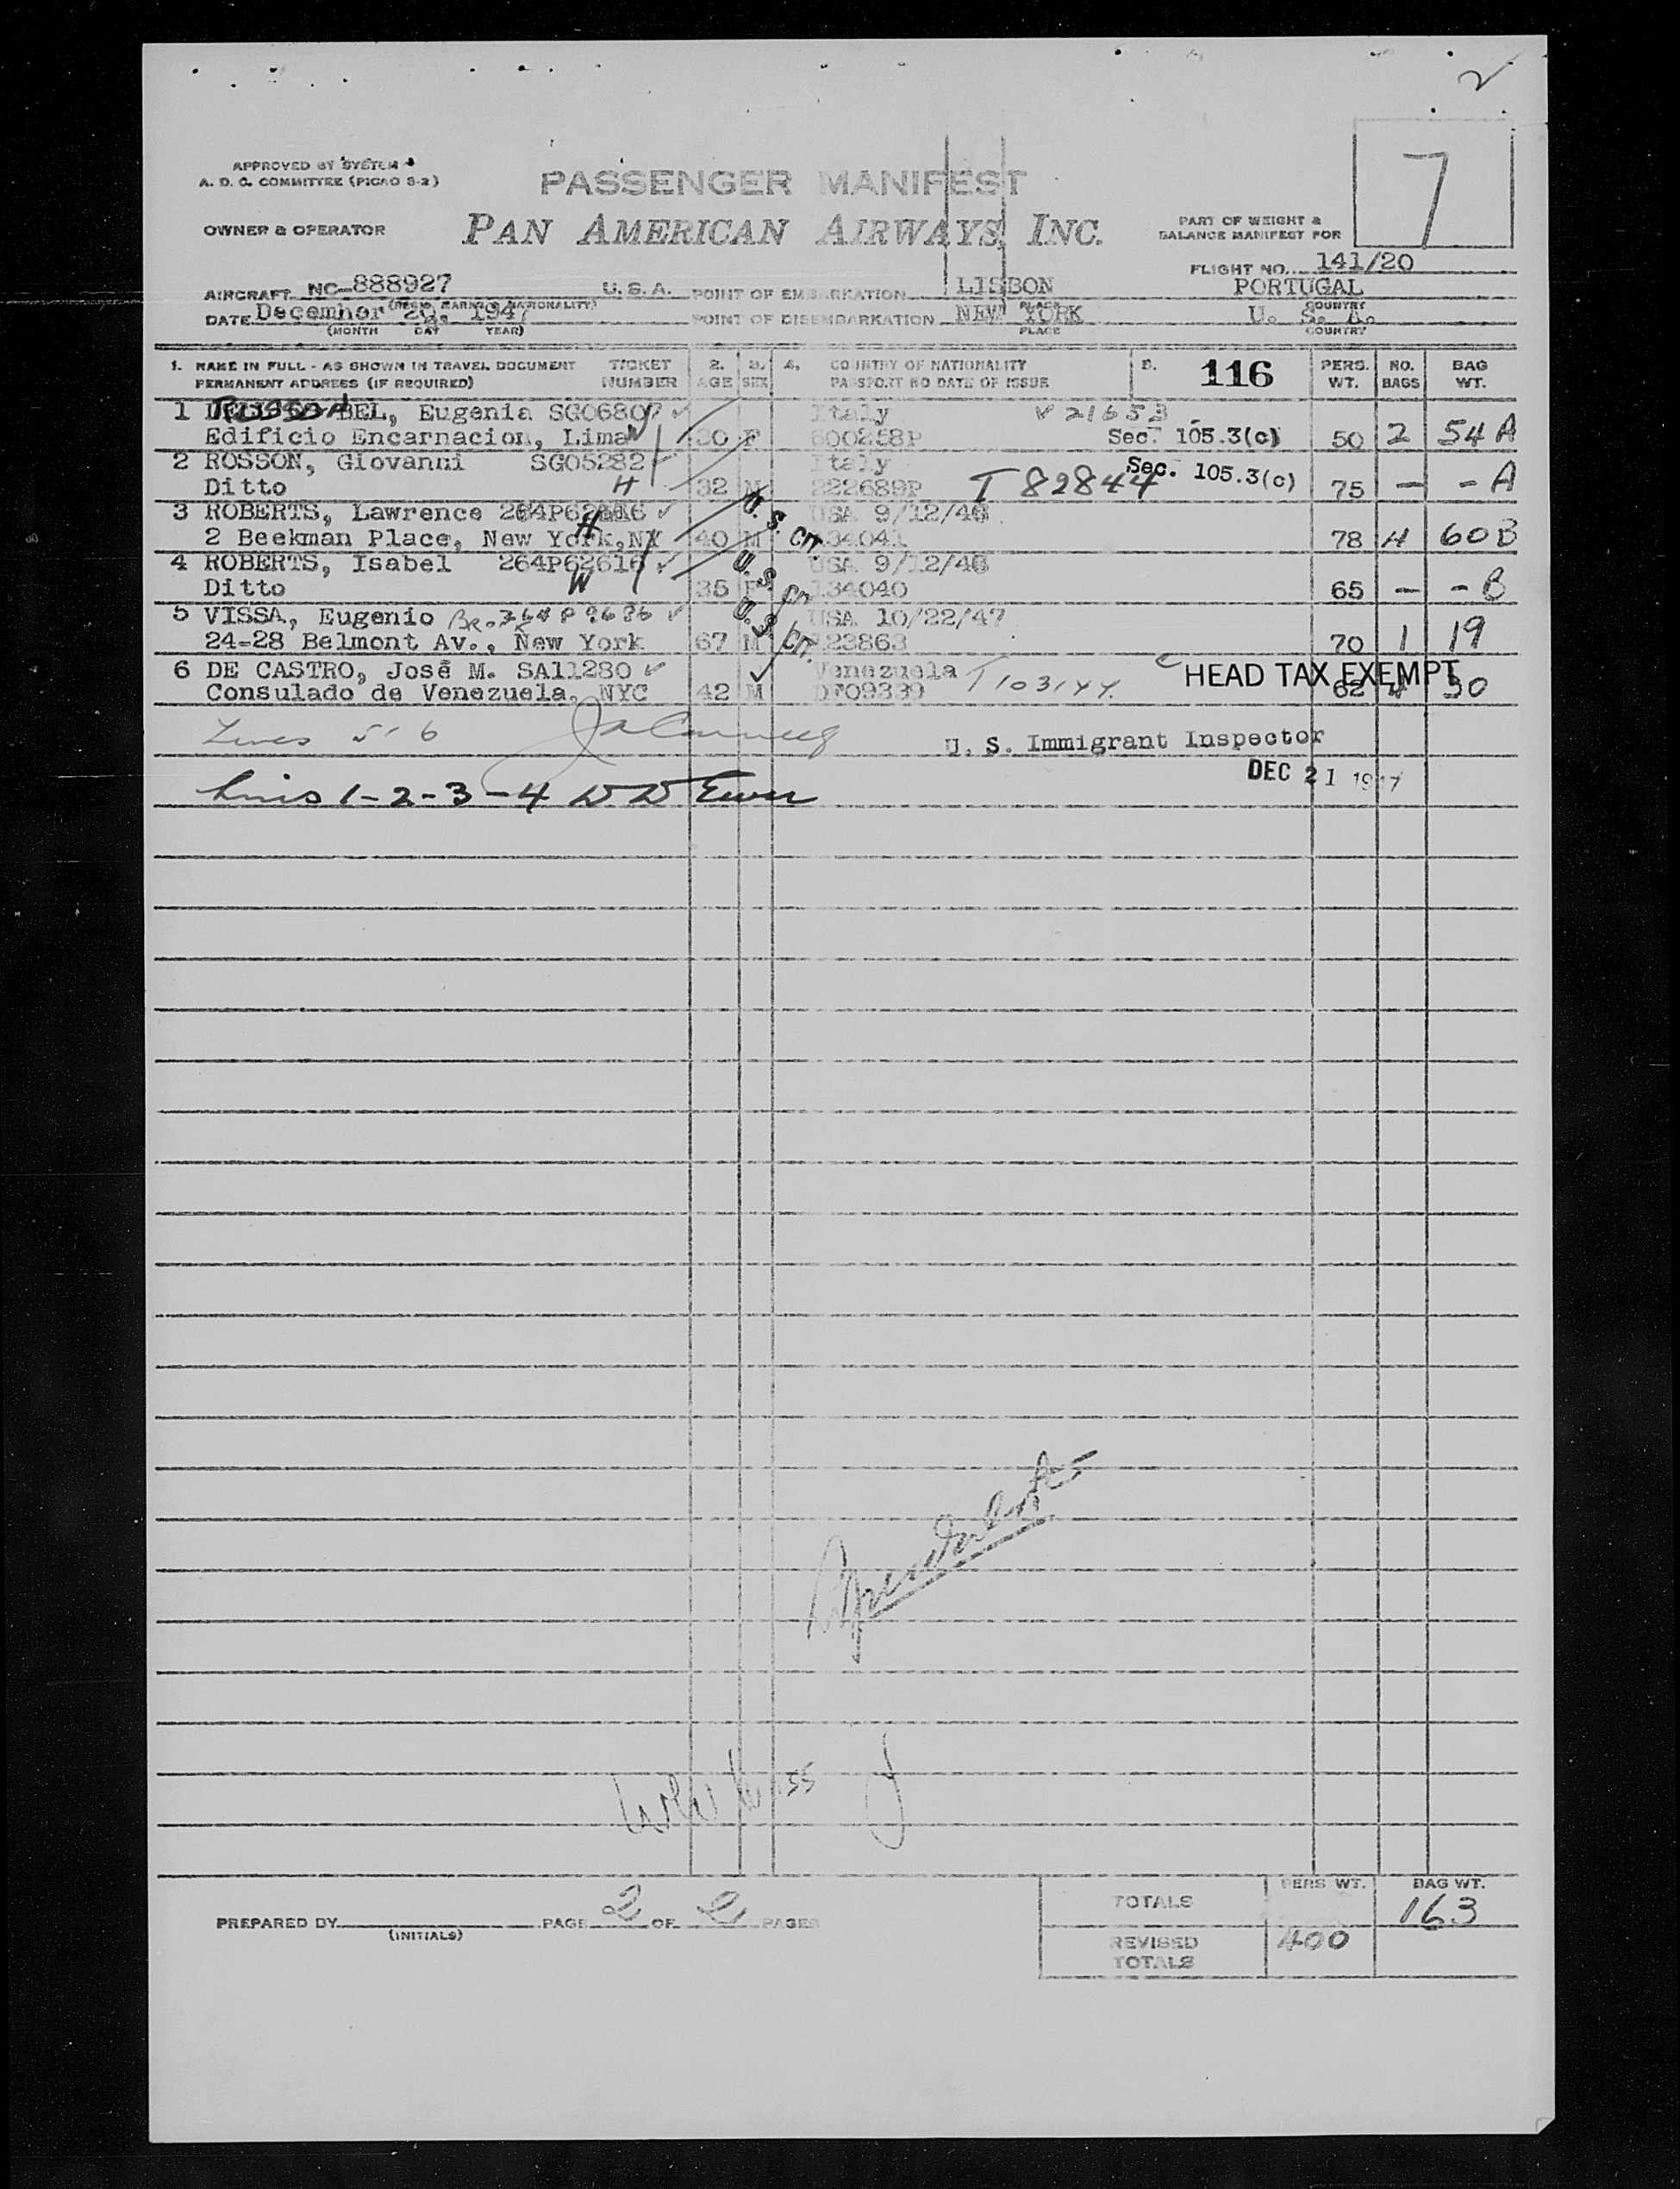 2
APPROVED BY SYSTEM
A. D. C. COMMITTEE (PICAO S-2)
PASSENGER MANIFEST
7
OWNER & OPERATOR
PAN AMERICAN AIRWAYS, INC.
PART OF WEIGHT &
BALANCE MANIFEST FOR
FLIGHT NO. 141/20
AIRCRAFT NC-888927 U. S. A. POINT OF EMBARKATION LISBON PORTUGAL
(REGIS. MARKS & NATIONALITY) PLACE COUNTRY
DATE December 20, 1947 POINT OF DISEMBARKATION NEW YORK U. S. A.
(MONTH DAY YEAR) PLACE COUNTRY
1. NAME IN FULL - AS SHOWN IN TRAVEL DOCUMENT TICKET 2. 3. 4. COUNTRY OF NATIONALITY 5. 116 PERS. NO. BAG
PERMANENT ADDRESS (IF REQUIRED) NUMBER AGE SEX PASSPORT NO DATE OF ISSUE WT. BAGS WT.
1 BEL, Eugenia SG06807 Italy V 21653
Edificio Encarnacion, Lima W 30 F 600258P Sec. 105.3(c) 50 2 54 A
2 ROSSON, Giovanni SG05282 Italy
Ditto H 32 M 222689P T 82844 Sec. 105.3(c) 75 — - A
3 ROBERTS, Lawrence USA 9/12/46 U. S. CIT.
2 Beekman Place, New York, NY H 40 M 134041 78 4 60 B
4 ROBERTS, Isabel 264P62616 USA 9/12/46 U. S. CIT.
Ditto W 35 F 134040 65 — - B
5 VISSA, Eugenio USA 10/22/47 U. S. CIT.
24-28 Belmont Av., New York 67 M 123863 70 1 19
6 DE CASTRO, José M. SA11280 Venezuela T 103144 HEAD TAX EXEMPT
Consulado de Venezuela, NYC 42 M DF09339 62 4 30
Lines 5-6
U. S. Immigrant Inspector
DEC 21 1947
Lines 1-2-3-4
PREPARED BY PAGE 2 OF 2 PAGES
(INITIALS)
PERS WT. BAG WT.
TOTALS 163
REVISED TOTALS 400